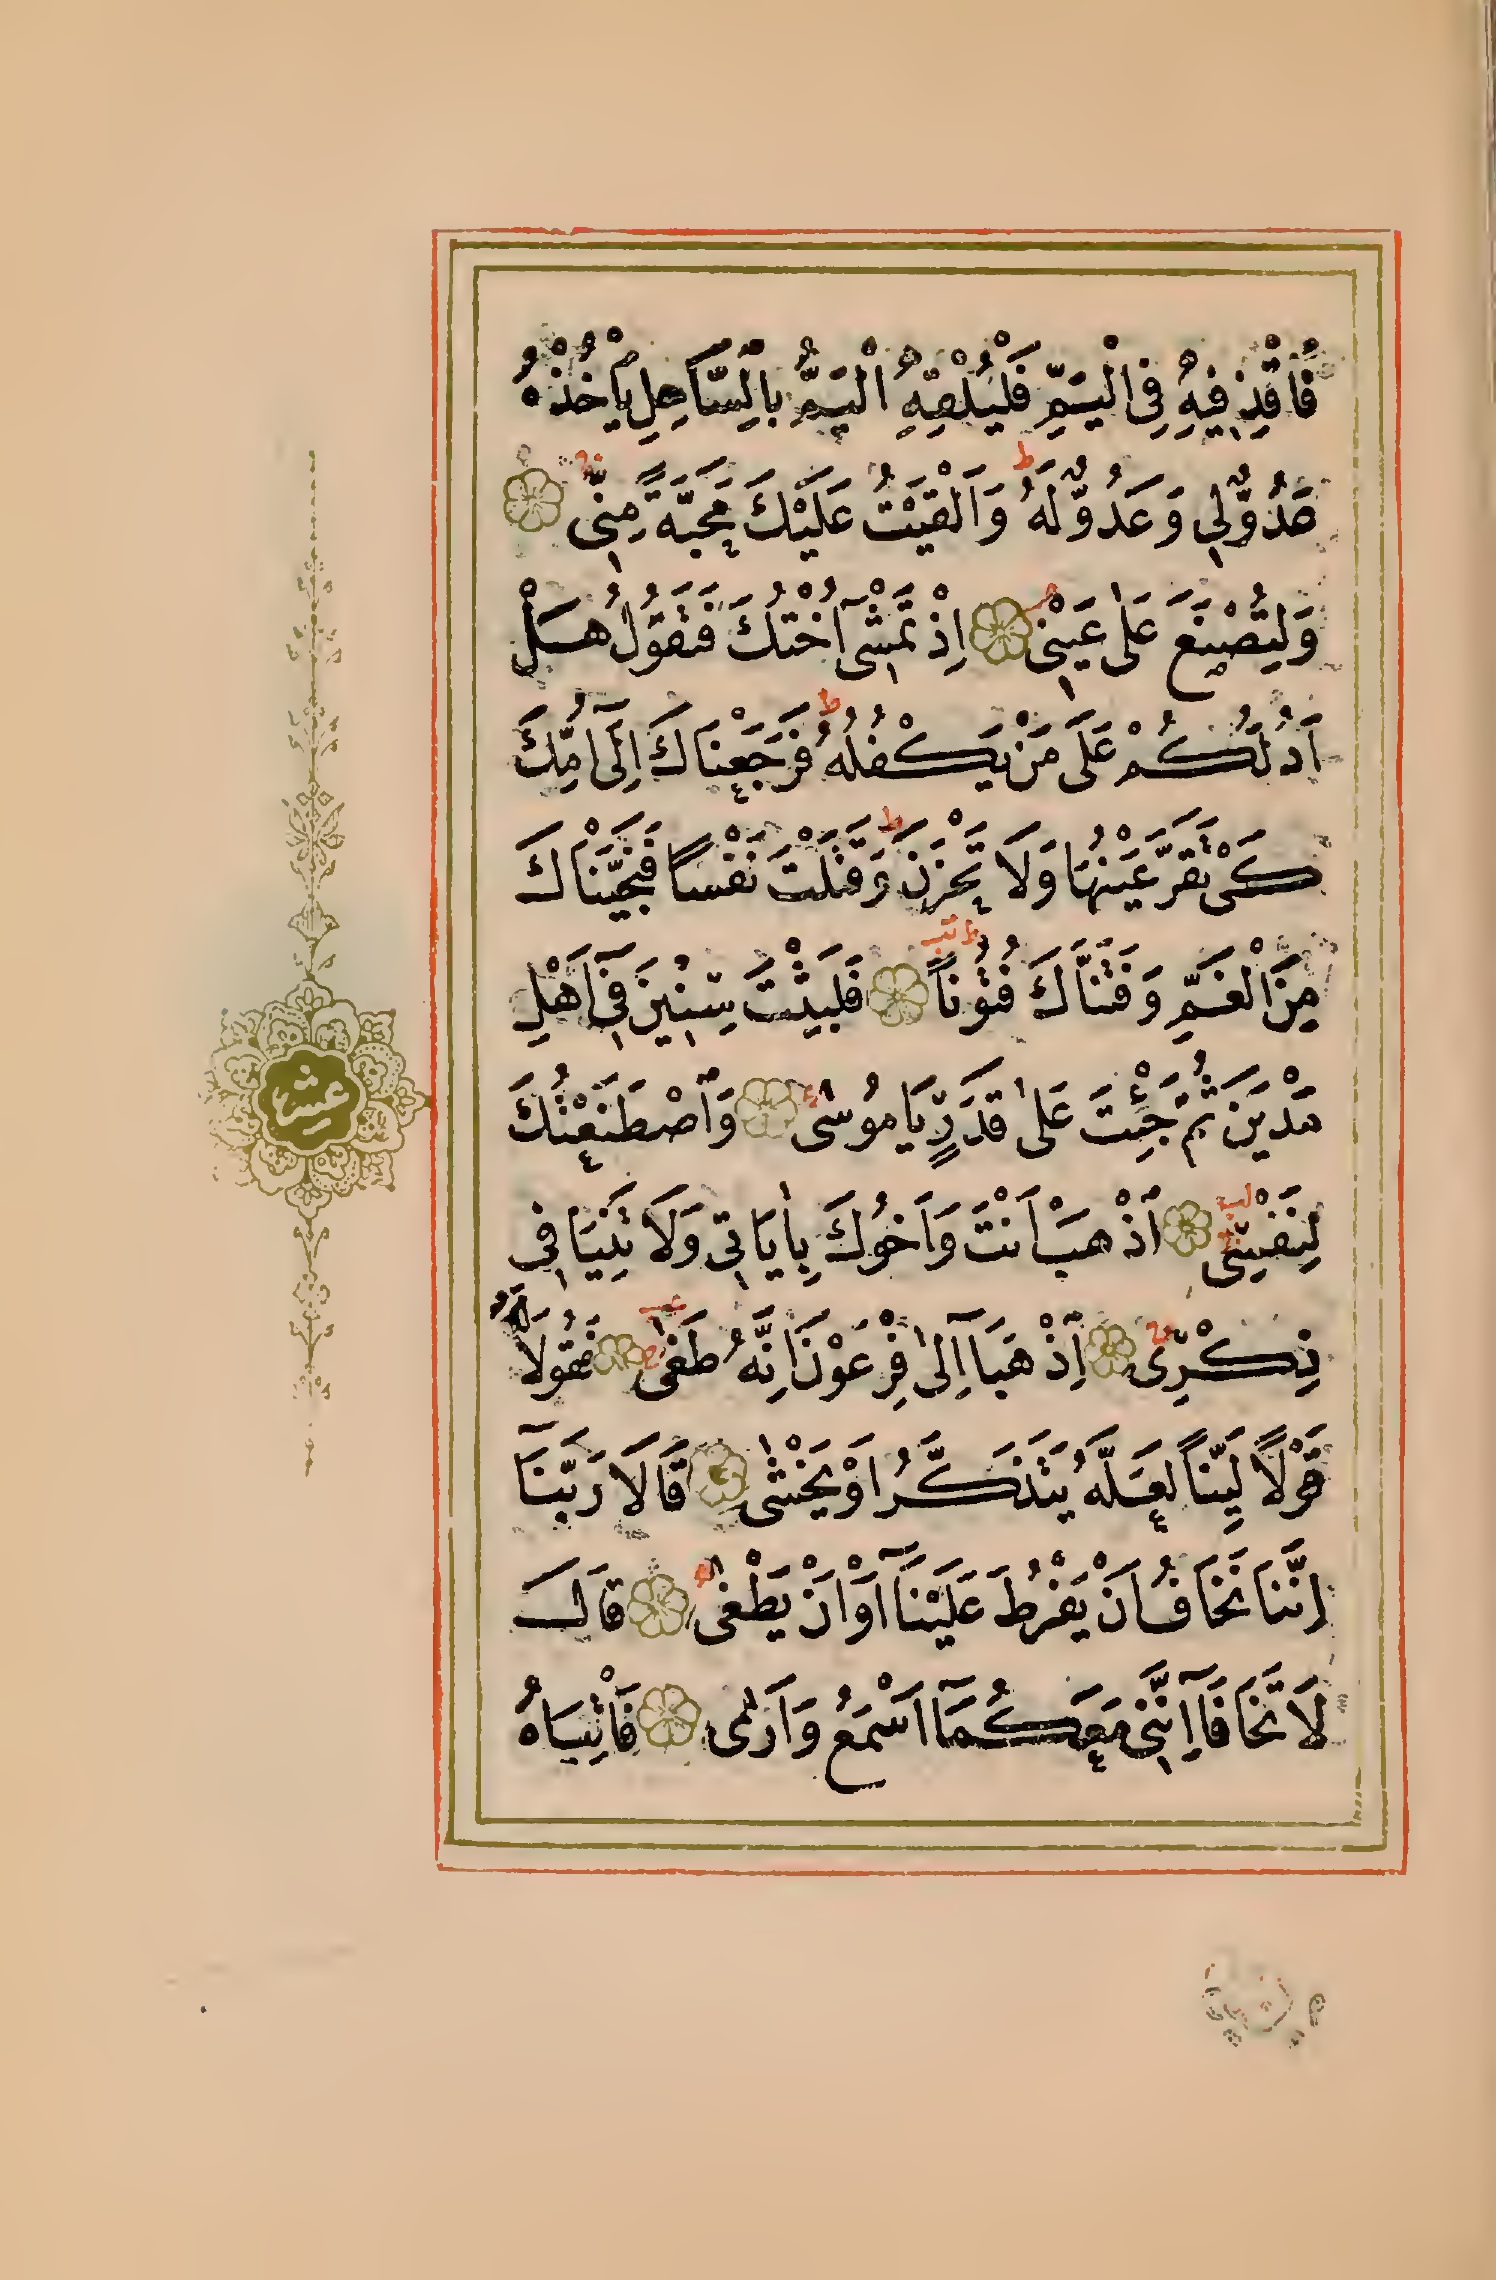 فَاقْذِفِيهِ فِى الْيَمِّ فَلْيُلْقِهِ الْيَمُّ بِالسَّاحِلِ يَأْخُذْهُ
عَدُوٌّ لِى وَعَدُوٌّ لَهُ ط وَاَلْقَيْتُ عَلَيْكَ مَحَبَّةً مِنِّى
وَلِتُصْنَعَ عَلٰى عَيْنِى اِذْ تَمْشِى اُخْتُكَ فَتَقُولُ هَلْ
اَدُلُّكُمْ عَلَى مَنْ يَكْفُلُهُ ط فَرَجَعْنَاكَ اِلَى اُمِّكَ
كَىْ تَقَرَّ عَيْنُهَا وَلَا تَحْزَنَ ط وَقَتَلْتَ نَفْسًا فَنَجَّيْنَاكَ
مِنَ الْغَمِّ وَفَتَنَّاكَ فُتُونًا فَلَبِثْتَ سِنِينَ فِى اَهْلِ
مَدْيَنَ ثُمَّ جِئْتَ عَلٰى قَدَرٍ يَا مُوسٰى وَاصْطَنَعْتُكَ
لِنَفْسِى اذْهَبْ اَنْتَ وَاَخُوكَ بِاٰيَاتِى وَلَا تَنِيَا فِى
ذِكْرِى اِذْهَبَا اِلٰى فِرْعَوْنَ اِنَّهُ طَغٰى فَقُولَا لَهُ
قَوْلًا لَيِّنًا لَعَلَّهُ يَتَذَكَّرُ اَوْ يَخْشٰى قَالَا رَبَّنَا
اِنَّنَا نَخَافُ اَنْ يَفْرُطَ عَلَيْنَا اَوْ اَنْ يَطْغٰى قَالَ
لَا تَخَافَا اِنَّنِى مَعَكُمَا اَسْمَعُ وَاَرٰى فَأْتِيَاهُ
عشر